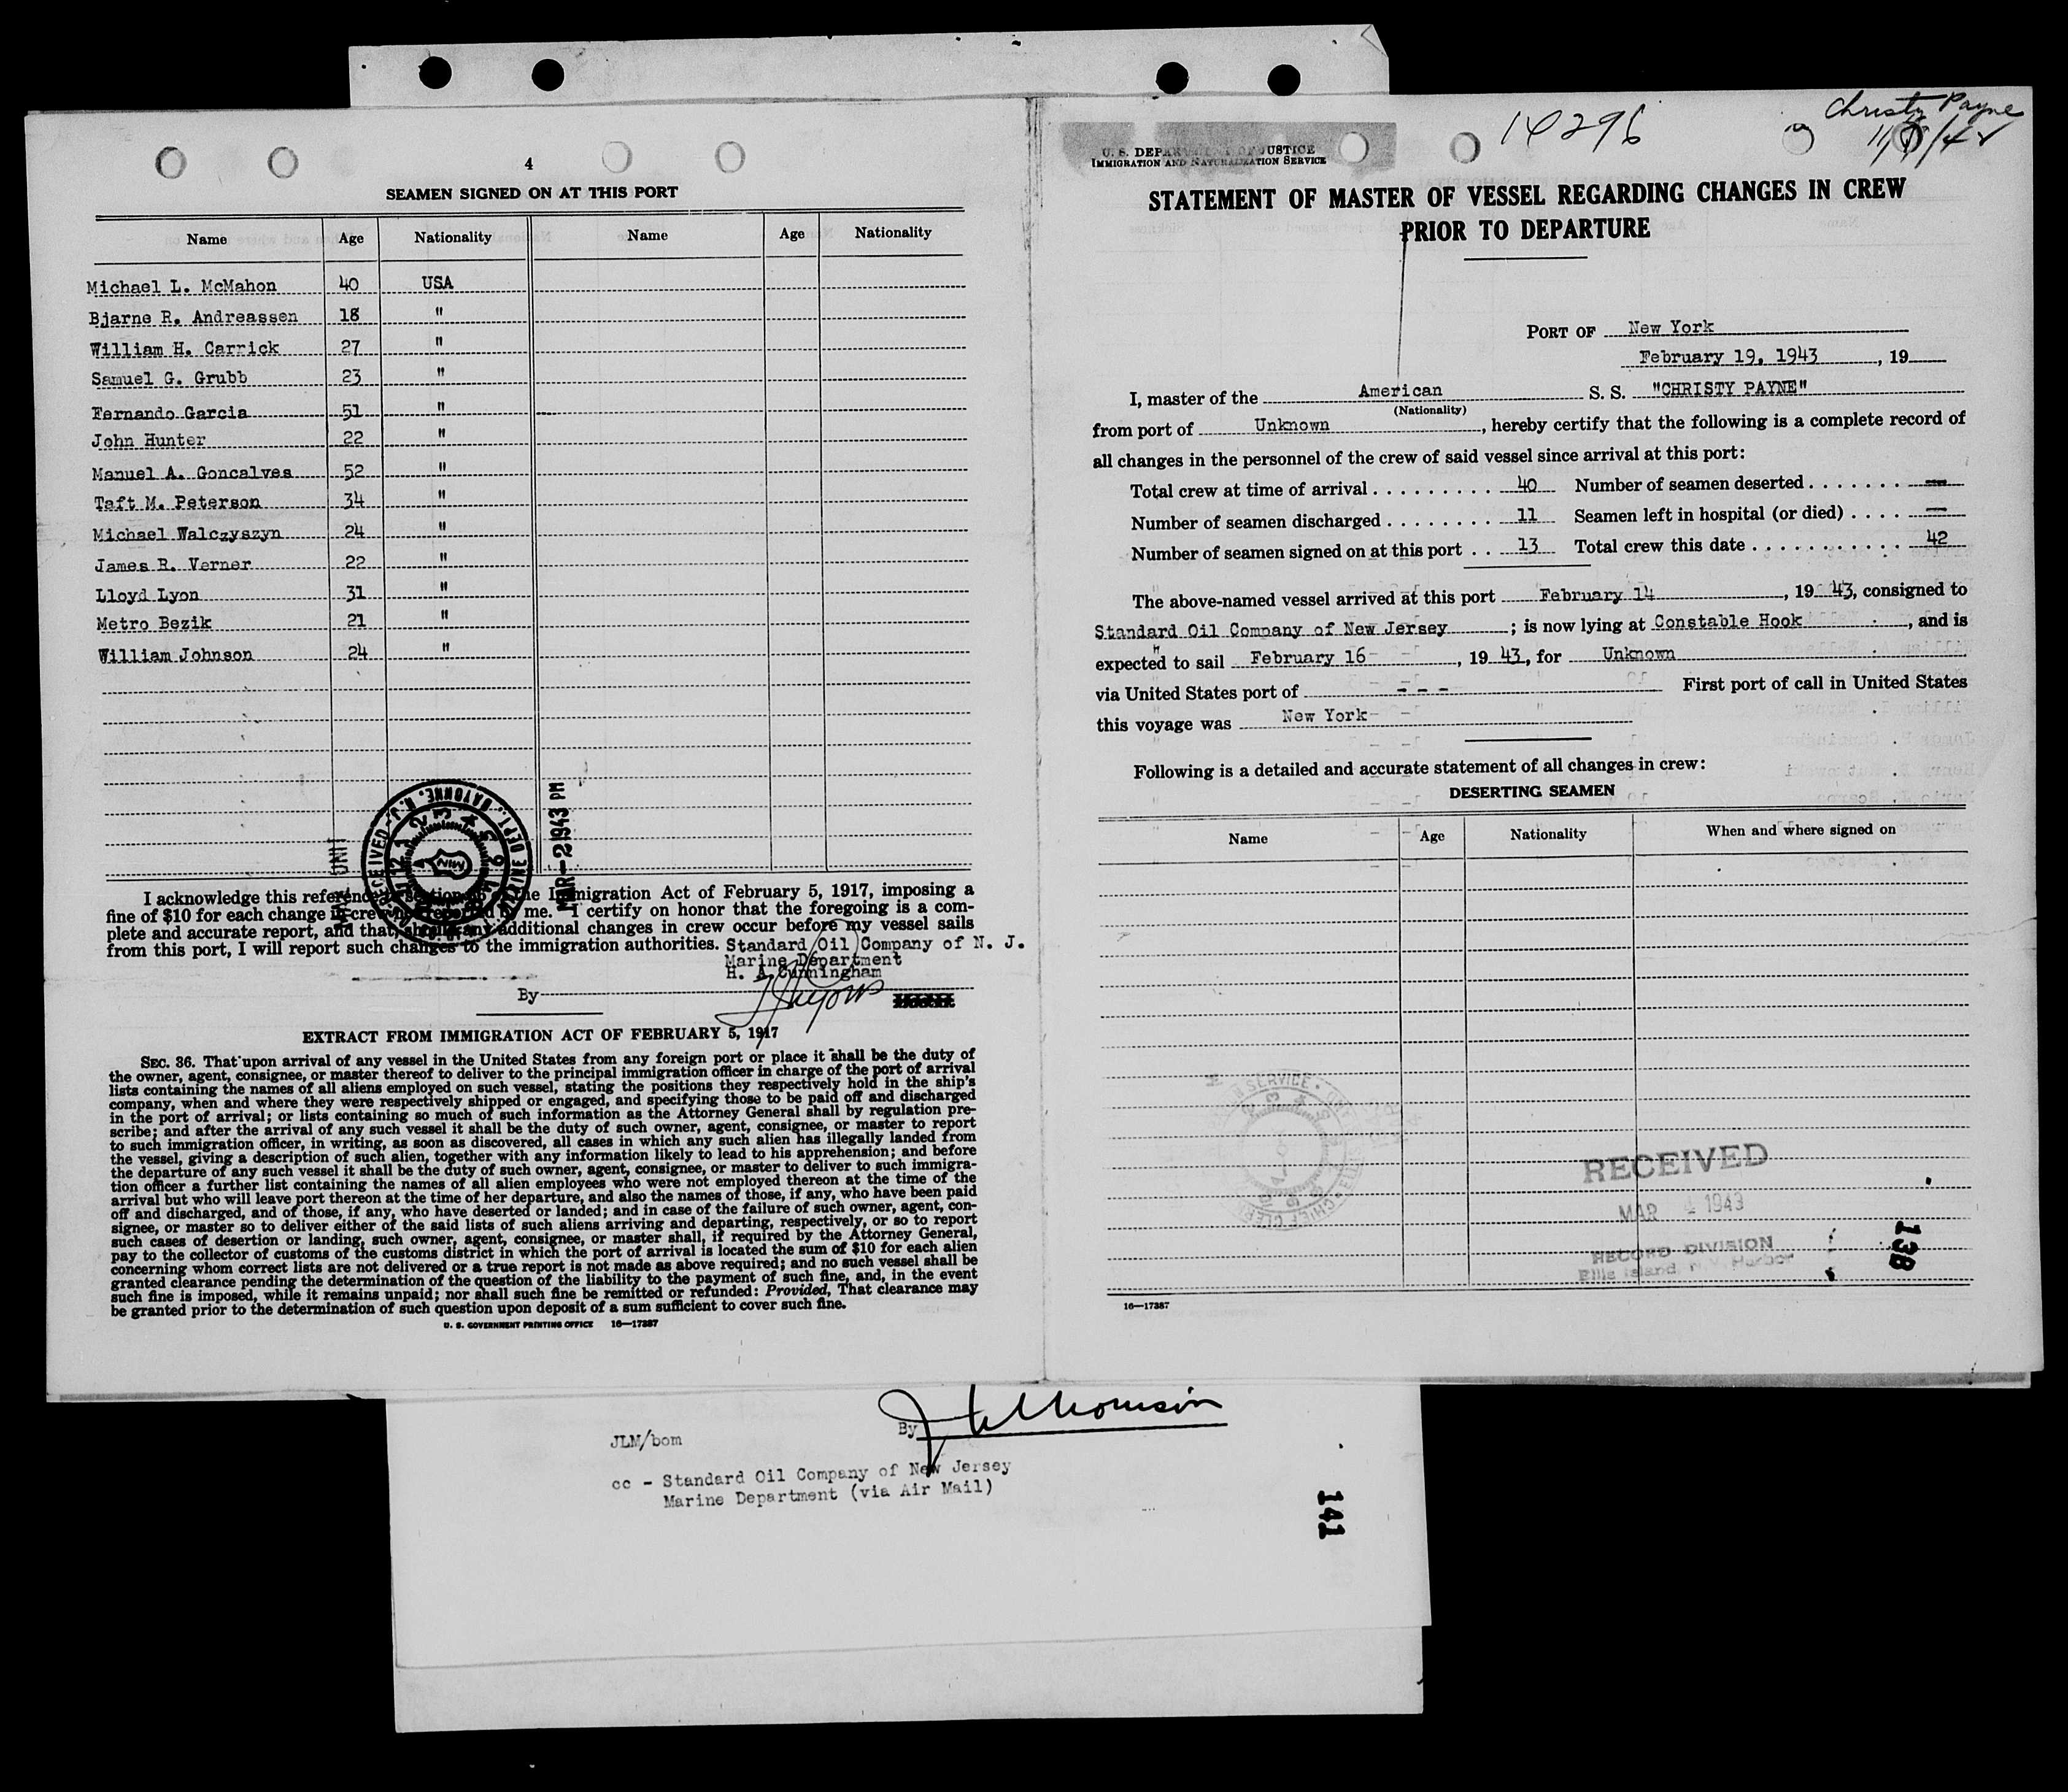 4
SEAMEN SIGNED ON AT THIS PORT
Name Age Nationality Name Age Nationality
Michael L. McMahon 40 USA
Bjarne R. Andreassen 18 "
William H. Carrick 27 "
Samuel G. Grubb 23 "
Fernando Garcia 51 "
John Hunter 22 "
Manuel A. Goncalves 52 "
Taft M. Peterson 34 "
Michael Walczyszyn 24 "
James R. Verner 22 "
Lloyd Lyon 31 "
Metro Bezik 21 "
William Johnson 24 "
MAR-2 1943 PM
I acknowledge this reference the Immigration Act of February 5, 1917, imposing a
fine of $10 for each change in crew not reported by me. I certify on honor that the foregoing is a com-
plete and accurate report, and that, should any additional changes in crew occur before my vessel sails
from this port, I will report such changes to the immigration authorities. Standard Oil Company of N. J.
Marine Department
H. A. Cunningham
By
EXTRACT FROM IMMIGRATION ACT OF FEBRUARY 5, 1917
SEC. 36. That upon arrival of any vessel in the United States from any foreign port or place it shall be the duty of
the owner, agent, consignee, or master thereof to deliver to the principal immigration officer in charge of the port of arrival
lists containing the names of all aliens employed on such vessel, stating the positions they respectively hold in the ship's
company, when and where they were respectively shipped or engaged, and specifying those to be paid off and discharged
in the port of arrival; or lists containing so much of such information as the Attorney General shall by regulation pre-
scribe; and after the arrival of any such vessel it shall be the duty of such owner, agent, consignee, or master to report
to such immigration officer, in writing, as soon as discovered, all cases in which any such alien has illegally landed from
the vessel, giving a description of such alien, together with any information likely to lead to his apprehension; and before
the departure of any such vessel it shall be the duty of such owner, agent, consignee, or master to deliver to such immigra-
tion officer a further list containing the names of all alien employees who were not employed thereon at the time of the
arrival but who will leave port thereon at the time of her departure, and also the names of those, if any, who have been paid
off and discharged, and of those, if any, who have deserted or landed; and in case of the failure of such owner, agent, con-
signee, or master so to deliver either of the said lists of such aliens arriving and departing, respectively, or so to report
such cases of desertion or landing, such owner, agent, consignee, or master shall, if required by the Attorney General,
pay to the collector of customs of the customs district in which the port of arrival is located the sum of $10 for each alien
concerning whom correct lists are not delivered or a true report is not made as above required; and no such vessel shall be
granted clearance pending the determination of the question of the liability to the payment of such fine, and, in the event
such fine is imposed, while it remains unpaid; nor shall such fine be remitted or refunded: Provided, That clearance may
be granted prior to the determination of such question upon deposit of a sum sufficient to cover such fine.
U. S. GOVERNMENT PRINTING OFFICE 16—17387
Christy Payne
14296
U. S. DEPARTMENT OF JUSTICE
IMMIGRATION AND NATURALIZATION SERVICE
STATEMENT OF MASTER OF VESSEL REGARDING CHANGES IN CREW
PRIOR TO DEPARTURE
PORT OF New York
February 19, 1943, 19
I, master of the American S. S. "CHRISTY PAYNE"
(Nationality)
from port of Unknown, hereby certify that the following is a complete record of
all changes in the personnel of the crew of said vessel since arrival at this port:
Total crew at time of arrival . . . . . . . . . . 40 Number of seamen deserted . . . . . . . —
Number of seamen discharged . . . . . . . . 11 Seamen left in hospital (or died) . . . . —
Number of seamen signed on at this port . . 13 Total crew this date . . . . . . . . . . . 42
The above-named vessel arrived at this port February 14, 19 43, consigned to
Standard Oil Company of New Jersey; is now lying at Constable Hook, and is
expected to sail February 16, 19 43, for Unknown
via United States port of - - - First port of call in United States
this voyage was New York
Following is a detailed and accurate statement of all changes in crew:
DESERTING SEAMEN
Name Age Nationality When and where signed on
RECEIVED
MAR 4 1943
RECORD DIVISION
Ellis Island, N. Y. Harbor
13B
16—17387
By
JLM/bom
cc - Standard Oil Company of New Jersey
Marine Department (via Air Mail)
141